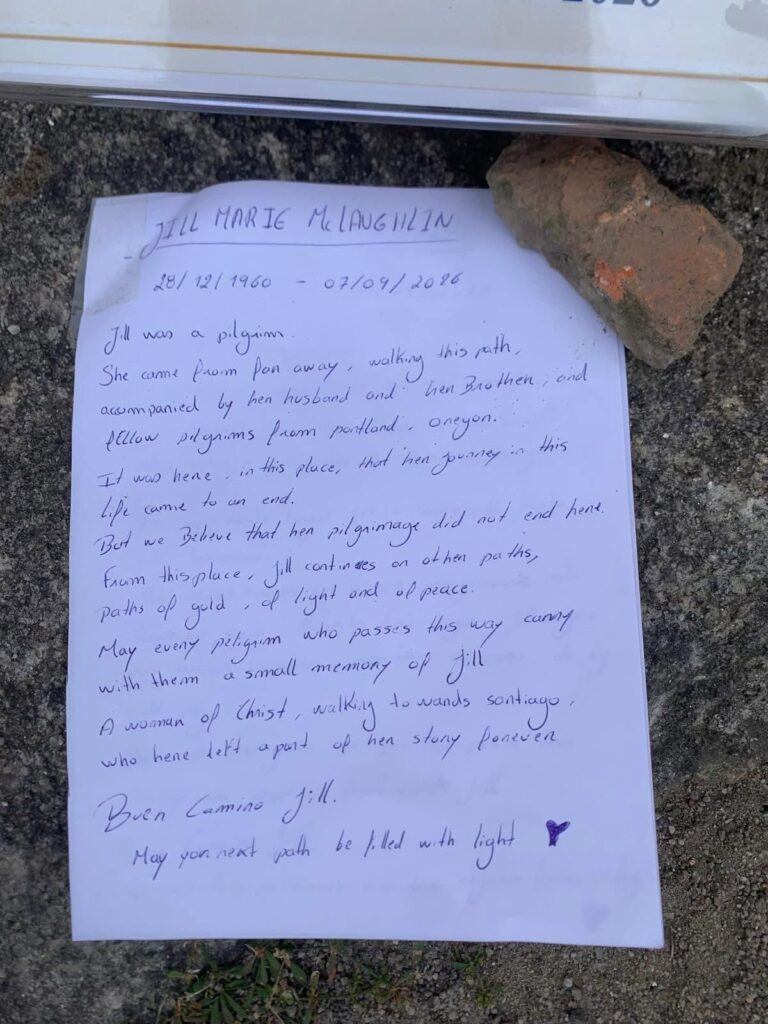 2026
JILL MARIE McLAUGHLIN
28/12/1960 - 07/09/2026
Jill was a pilgrim.
She came from far away, walking this path,
accompanied by her husband and her Brother, and
fellow pilgrims from portland, oregon.
It was here, in this place, that her journey in this
life came to an end.
But we Believe that her pilgrimage did not end here.
From this place, Jill continues on other paths,
paths of gold, of light and of peace.
May every peligrim who passes this way carry
with them a small memory of Jill
A woman of Christ, walking towards santiago,
who here left a part of her story forever
Buen Camino Jill.
May your next path be filled with light